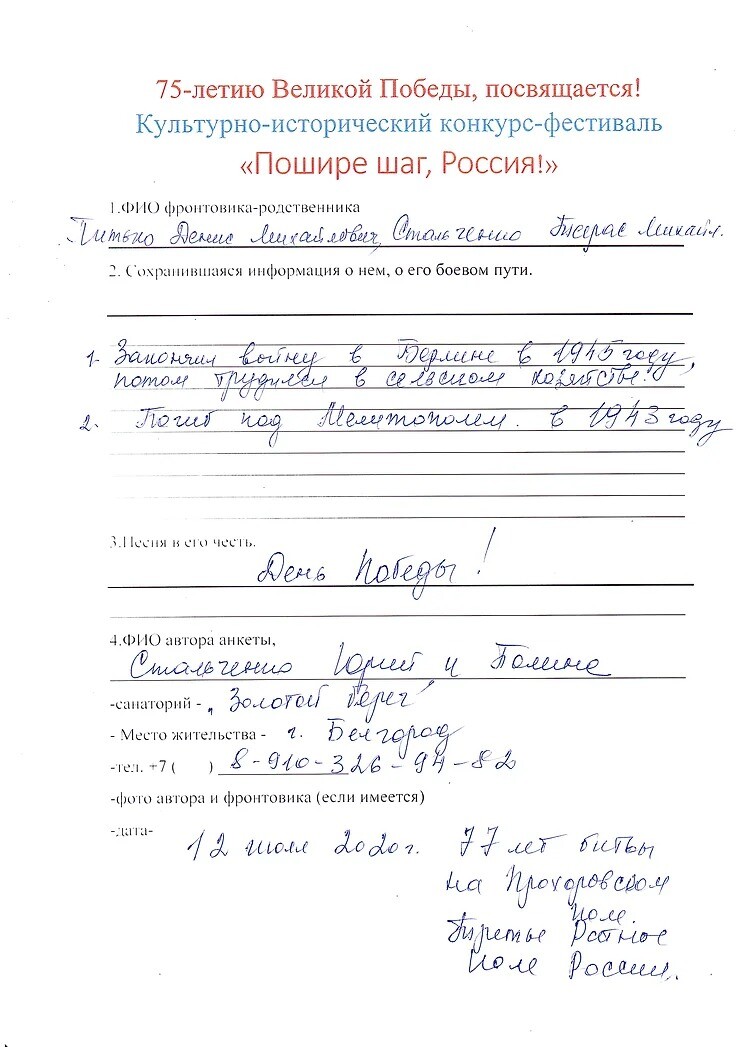 75-летию Великой Победы, посвящается!
Культурно-исторический конкурс-фестиваль
«Пошире шаг, Россия!»
1.ФИО фронтовика-родственника
Питько Денис Михайлович, Стальченко Тарас Михайл.
2. Сохранившаяся информация о нем, о его боевом пути.
1- Закончил войну в Берлине в 1945 году,
потом трудился в сельском хозяйстве.
2- Погиб под Мелитополем. в 1943 году
3.Песня в его честь.
День Победы!
4.ФИО автора анкеты,
Стальченко Юрий и Полина
-санаторий - „Золотой берег"
- Место жительства - г. Белгород
-тел. +7 ( ) 8-910-326-94-82
-фото автора и фронтовика (если имеется)
-дата- 12 июля 2020г. 77 лет битвы
на Прохоровском
поле.
Третье Ратное
поле России.